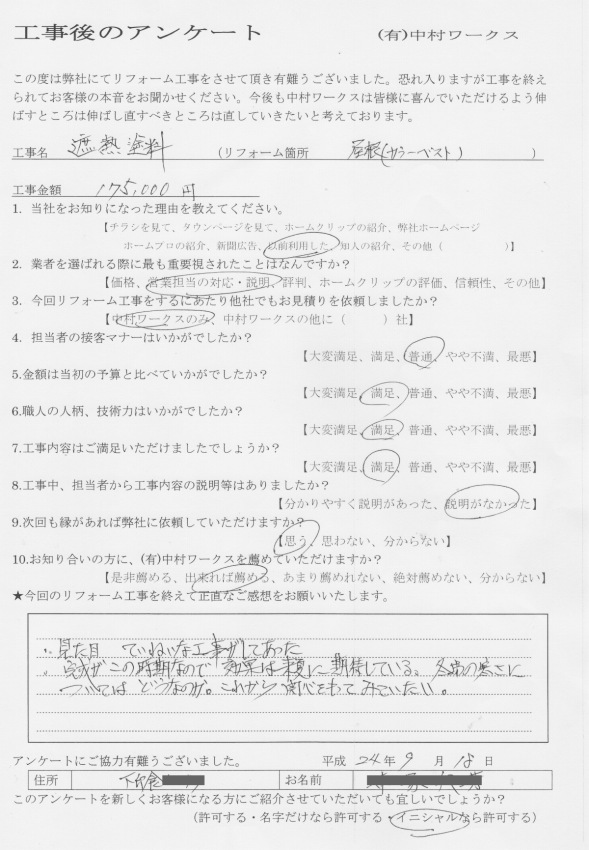 工事後のアンケート (有)中村ワークス
この度は弊社にてリフォーム工事をさせて頂き有難うございました。恐れ入りますが工事を終え
られてお客様の本音をお聞かせください。今後も中村ワークスは皆様に喜んでいただけるよう伸
ばすところは伸ばし直すべきところは直していきたいと考えております。
工事名 遮熱塗料 (リフォーム箇所 屋根(カラーベスト) )
工事金額 175,000 円
1. 当社をお知りになった理由を教えてください。
【チラシを見て、タウンページを見て、ホームクリップの紹介、弊社ホームページ
ホームプロの紹介、新聞広告、以前利用した、知人の紹介、その他( )】
2. 業者を選ばれる際に最も重要視されたことはなんですか?
【価格、営業担当の対応・説明、評判、ホームクリップの評価、信頼性、その他】
3. 今回リフォーム工事をするにあたり他社でもお見積りを依頼しましたか?
【中村ワークスのみ、中村ワークスの他に( )社】
4. 担当者の接客マナーはいかがでしたか?
【大変満足、満足、普通、やや不満、最悪】
5.金額は当初の予算と比べていかがでしたか?
【大変満足、満足、普通、やや不満、最悪】
6.職人の人柄、技術力はいかがでしたか?
【大変満足、満足、普通、やや不満、最悪】
7.工事内容はご満足いただけましたでしょうか?
【大変満足、満足、普通、やや不満、最悪】
8.工事中、担当者から工事内容の説明等はありましたか?
【分かりやすく説明があった、説明がなかった】
9.次回も縁があれば弊社に依頼していただけますか?
【思う、思わない、分からない】
10.お知り合いの方に、(有)中村ワークスを薦めていただけますか?
【是非薦める、出来れば薦める、あまり薦めれない、絶対薦めない、分からない】
★今回のリフォーム工事を終えて正直なご感想をお願いいたします。
・見た目 ていねいな工事がしてあった
・完成がこの時期なので 効果は来夏に期待している。冬場の寒さに
ついては どうなのか。これから関心をもってみていたい。
アンケートにご協力有難うございました。 平成 24 年 9 月 18 日
住所 下印食 お名前
このアンケートを新しくお客様になる方にご紹介させていただいても宜しいでしょうか?
(許可する・名字だけなら許可する・イニシャルなら許可する)